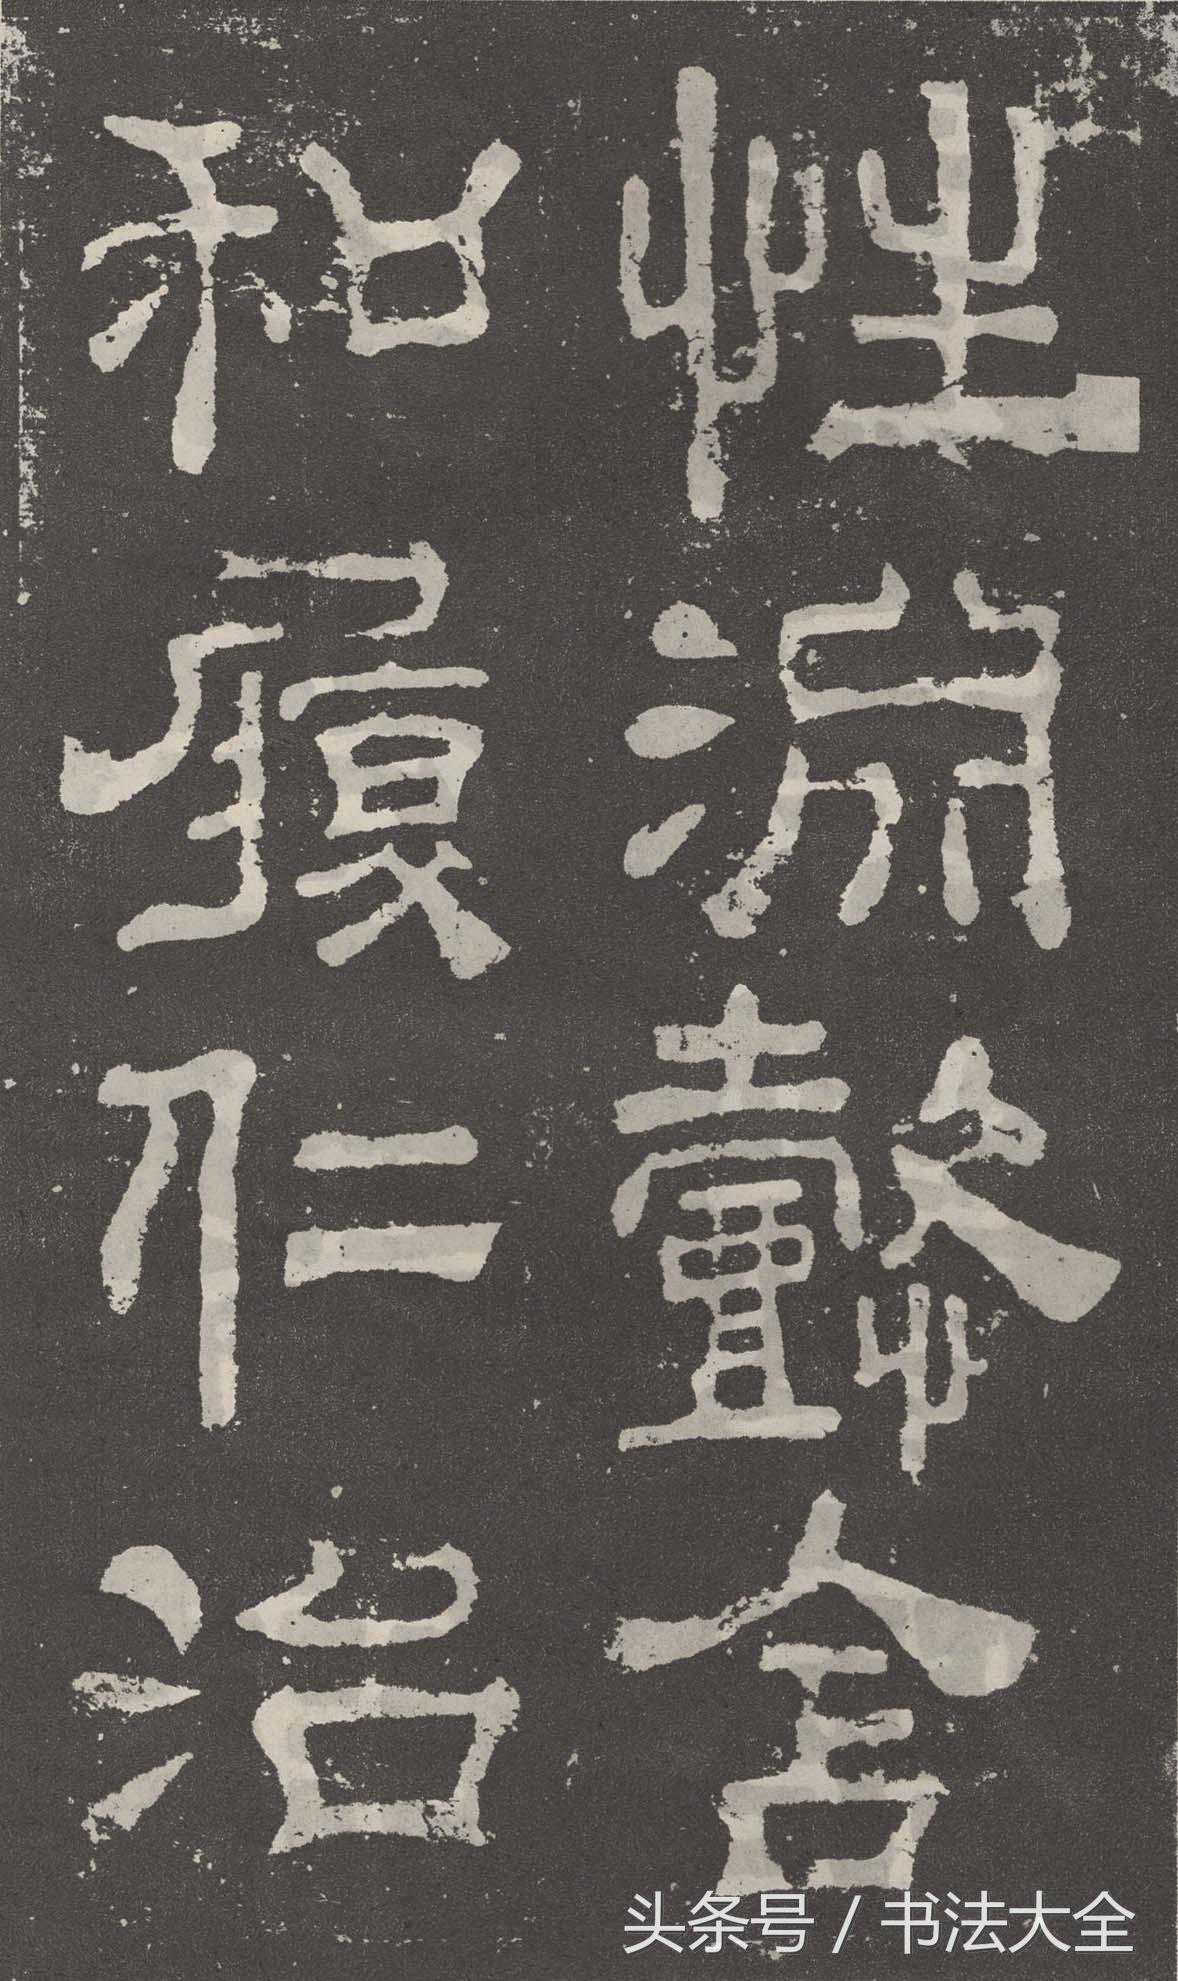 性淵懿含
和履仁治
头条号 / 书法大全